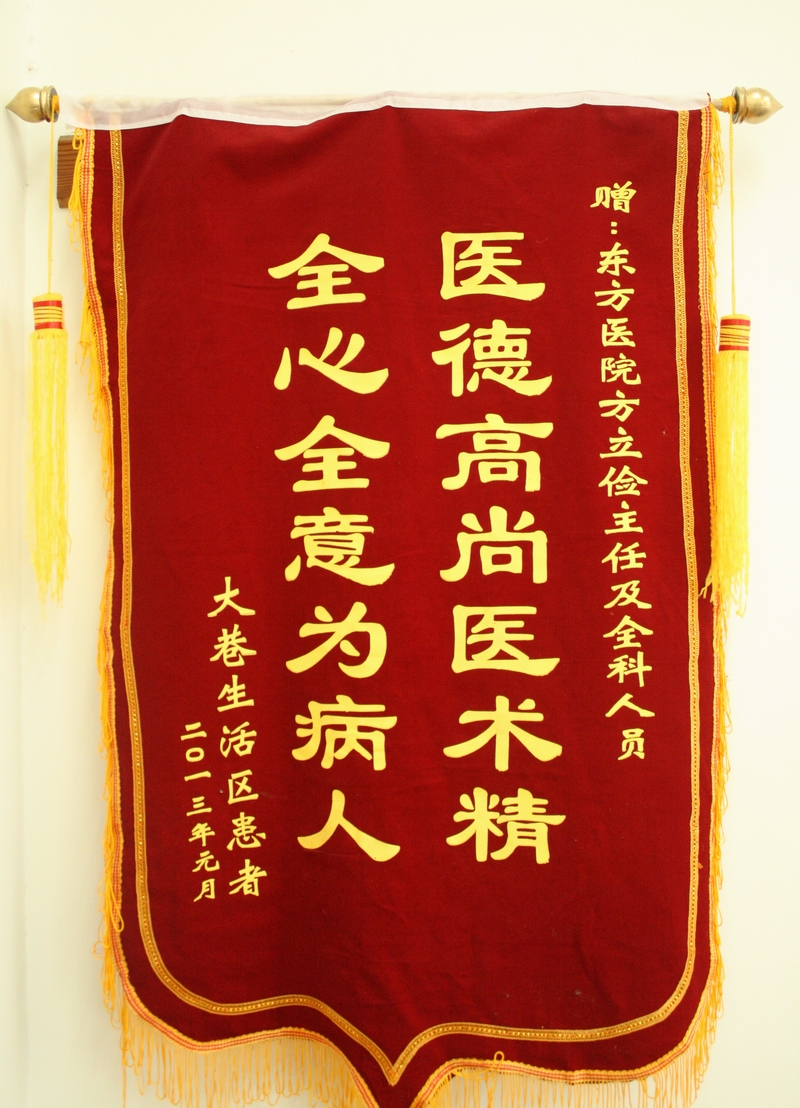 赠:东方医院方立俭主任及全科人员
医德高尚医术精
全心全意为病人
大巷生活区患者
二〇一三年元月